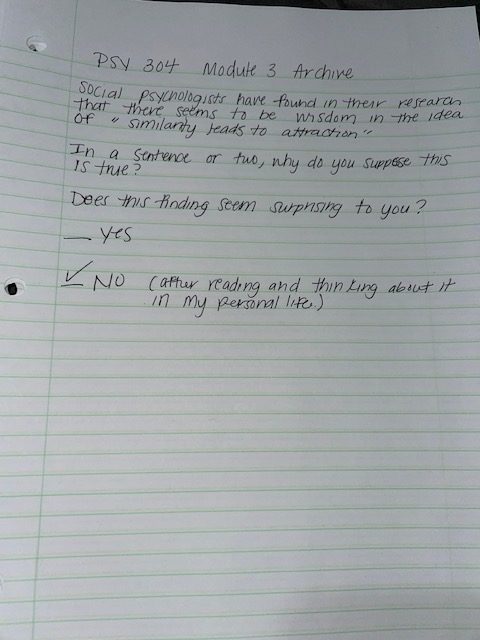 PSY 304 Module 3 Archive
Social psychologists have found in their research
that there seems to be wisdom in the idea
of "similarity leads to attraction"
In a sentence or two, why do you suppose this
is true?
Does this finding seem surprising to you?
__ Yes
✓ NO (after reading and thinking about it
in my personal life.)